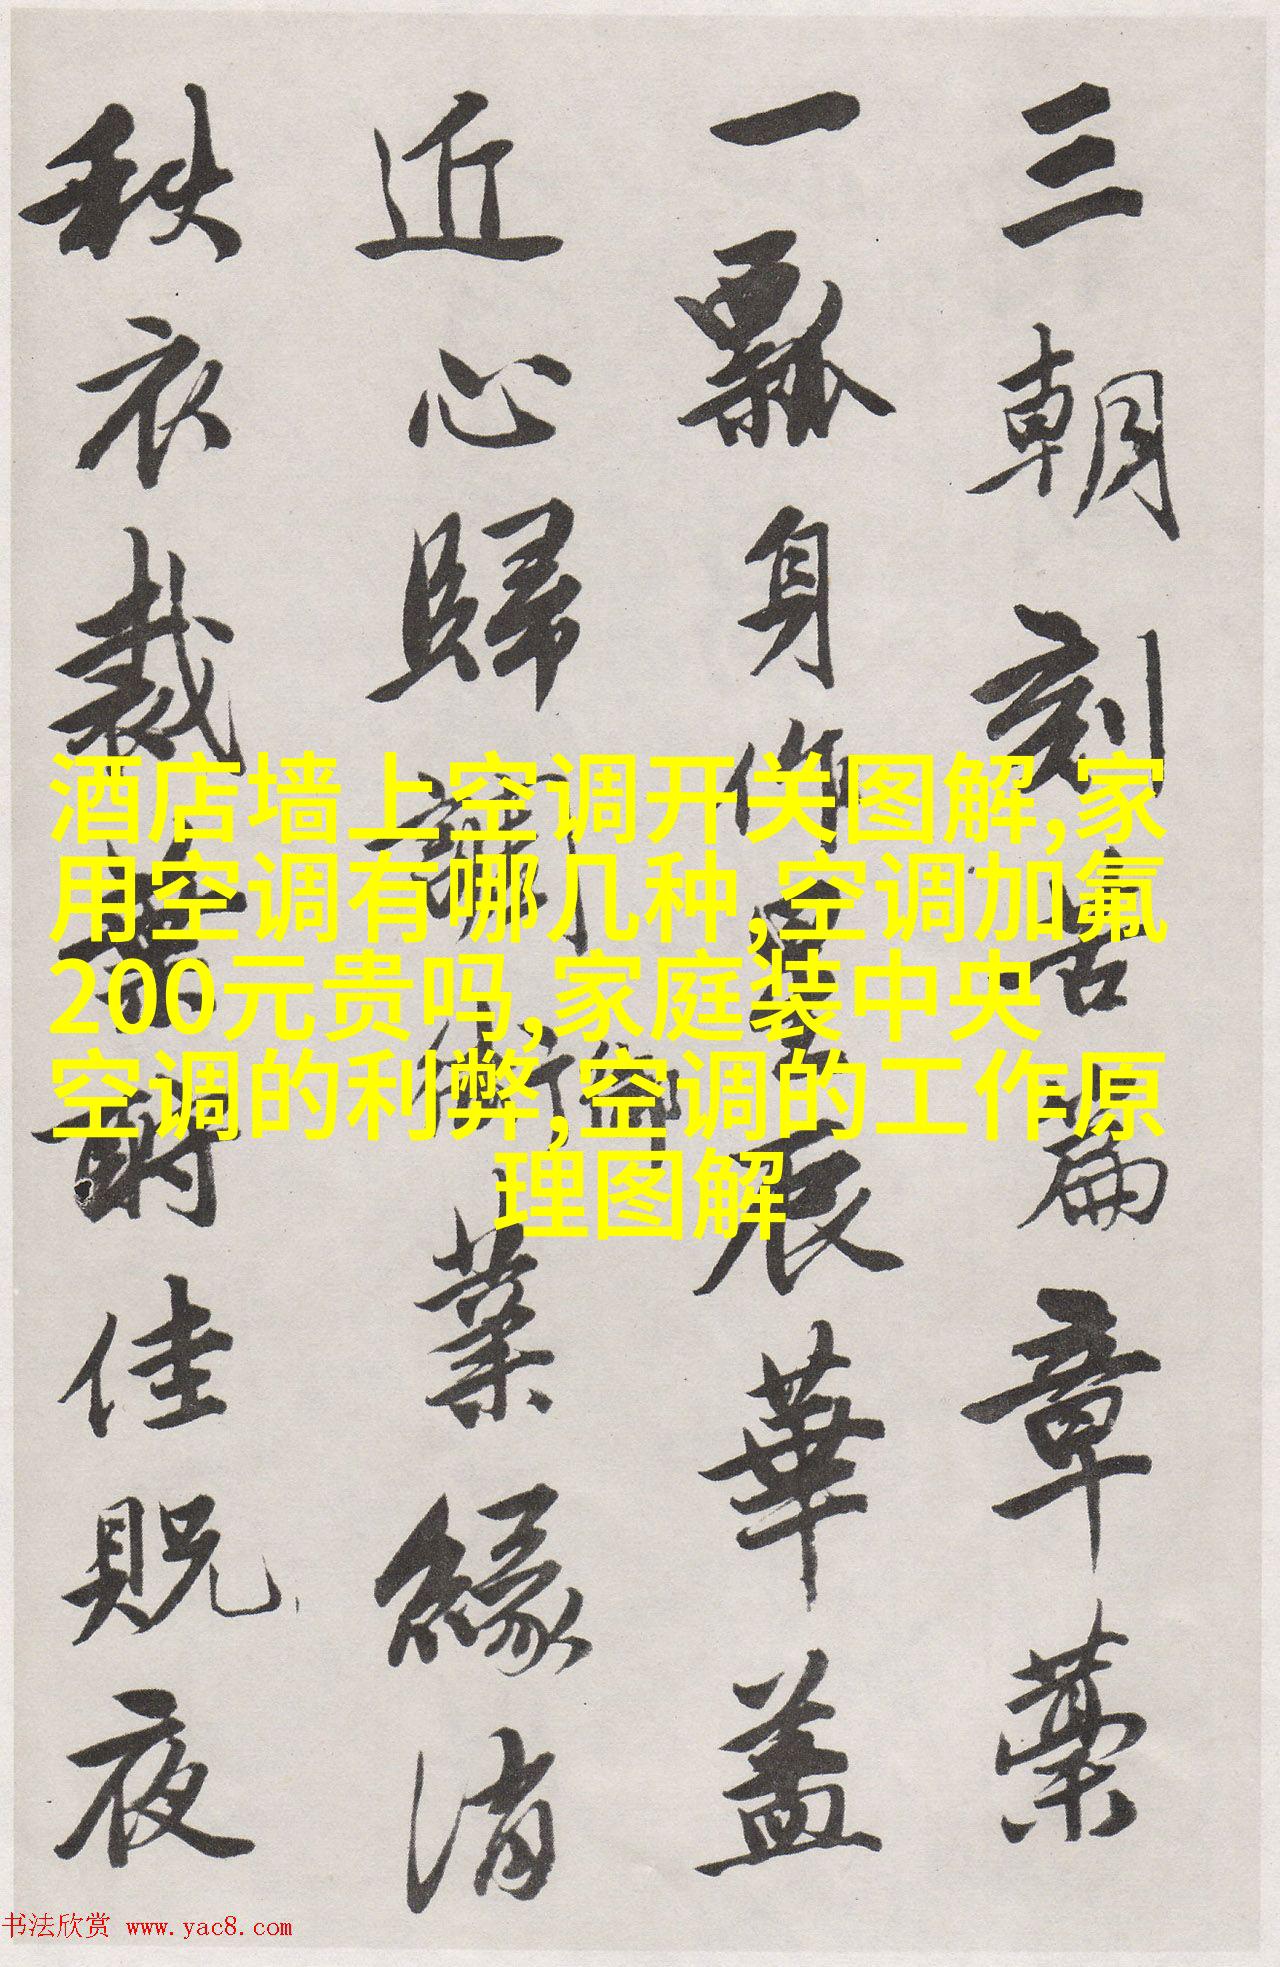 三朝刻苦篇章藁
一瓢身作星辰華蓋
近心歸讲衡御葉緣消
秩衣裁製酬佳贶夜
酒店墙上空调开关图解,家
用空调有哪几种,空调加氟
200元贵吗,家庭装中央
空调的利弊,空调的工作原
理图解
书法欣赏 www.yac8.com